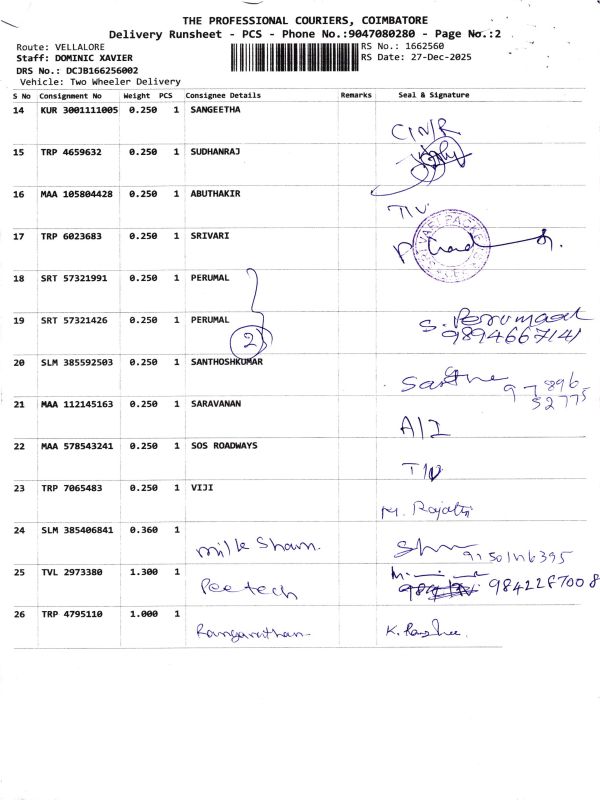 THE PROFESSIONAL COURIERS, COIMBATORE
Delivery Runsheet - PCS - Phone No.:9047080280 - Page No.:2
Route: VELLALORE RS No.: 1662560
Staff: DOMINIC XAVIER RS Date: 27-Dec-2025
DRS No.: DCJB166256002
Vehicle: Two Wheeler Delivery
S No Consignment No Weight PCS Consignee Details Remarks Seal & Signature
14 KUR 3001111005 0.250 1 SANGEETHA
CIN/R
15 TRP 4659632 0.250 1 SUDHANRAJ
16 MAA 105804428 0.250 1 ABUTHAKIR
TIV
17 TRP 6023683 0.250 1 SRIVARI
18 SRT 57321991 0.250 1 PERUMAL
19 SRT 57321426 0.250 1 PERUMAL
S. Perumaal
9894667141
2
20 SLM 385592503 0.250 1 SANTHOSHKUMAR
97896
52775
21 MAA 112145163 0.250 1 SARAVANAN
A/I
22 MAA 578543241 0.250 1 SOS ROADWAYS
23 TRP 7065483 0.250 1 VIJI
M. Rajathi
24 SLM 385406841 0.360 1
milk Sham.
25 TVL 2973380 1.300 1
Peetech
9842287008
26 TRP 4795110 1.000 1
Ranganathan